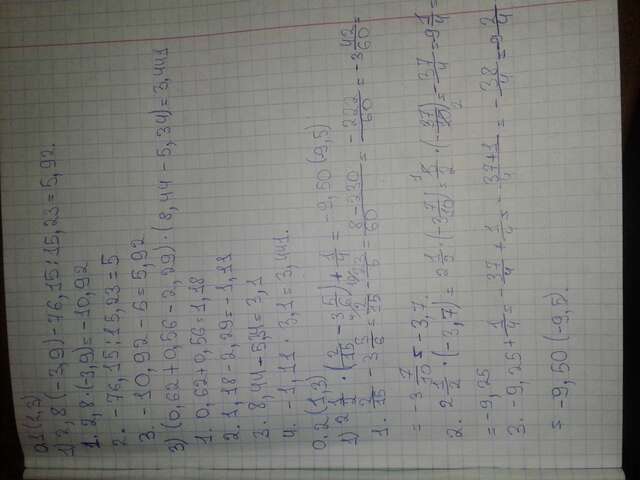 01(1,3)
1) 2,8(-3,9)-76,15:15,23=5,92.
1. 2,8·(-3,9)=-10,92
2. -76,15:15,23=5
3. -10,92-5=5,92
3) (0,62+0,56-2,29)·(8,44-5,34)=3,441
1. 0,62+0,56=1,18
2. 1,18-2,29=-1,11
3. 8,44-5,34=3,1
4. -1,11·3,1=3,441.
0.2(1,3)
1) 2 1/2·(2/15-3 5/6)+1/4=-9,50(-9,5)
1. 2/15-3 5/6=2/15-23/6=8-230/60=-222/60=-3 42/60=
=-3 7/10=-3,7.
2. 2 1/2·(-3,7)=2 1/2·(-3 7/10)=5/2·(-37/10)=-37/4=-9 1/4=
=-9,25
3. -9,25+1/4=-37/4+1/4=-37+1/4=-38/4=-9 2/4
=-9,50(-9,5).